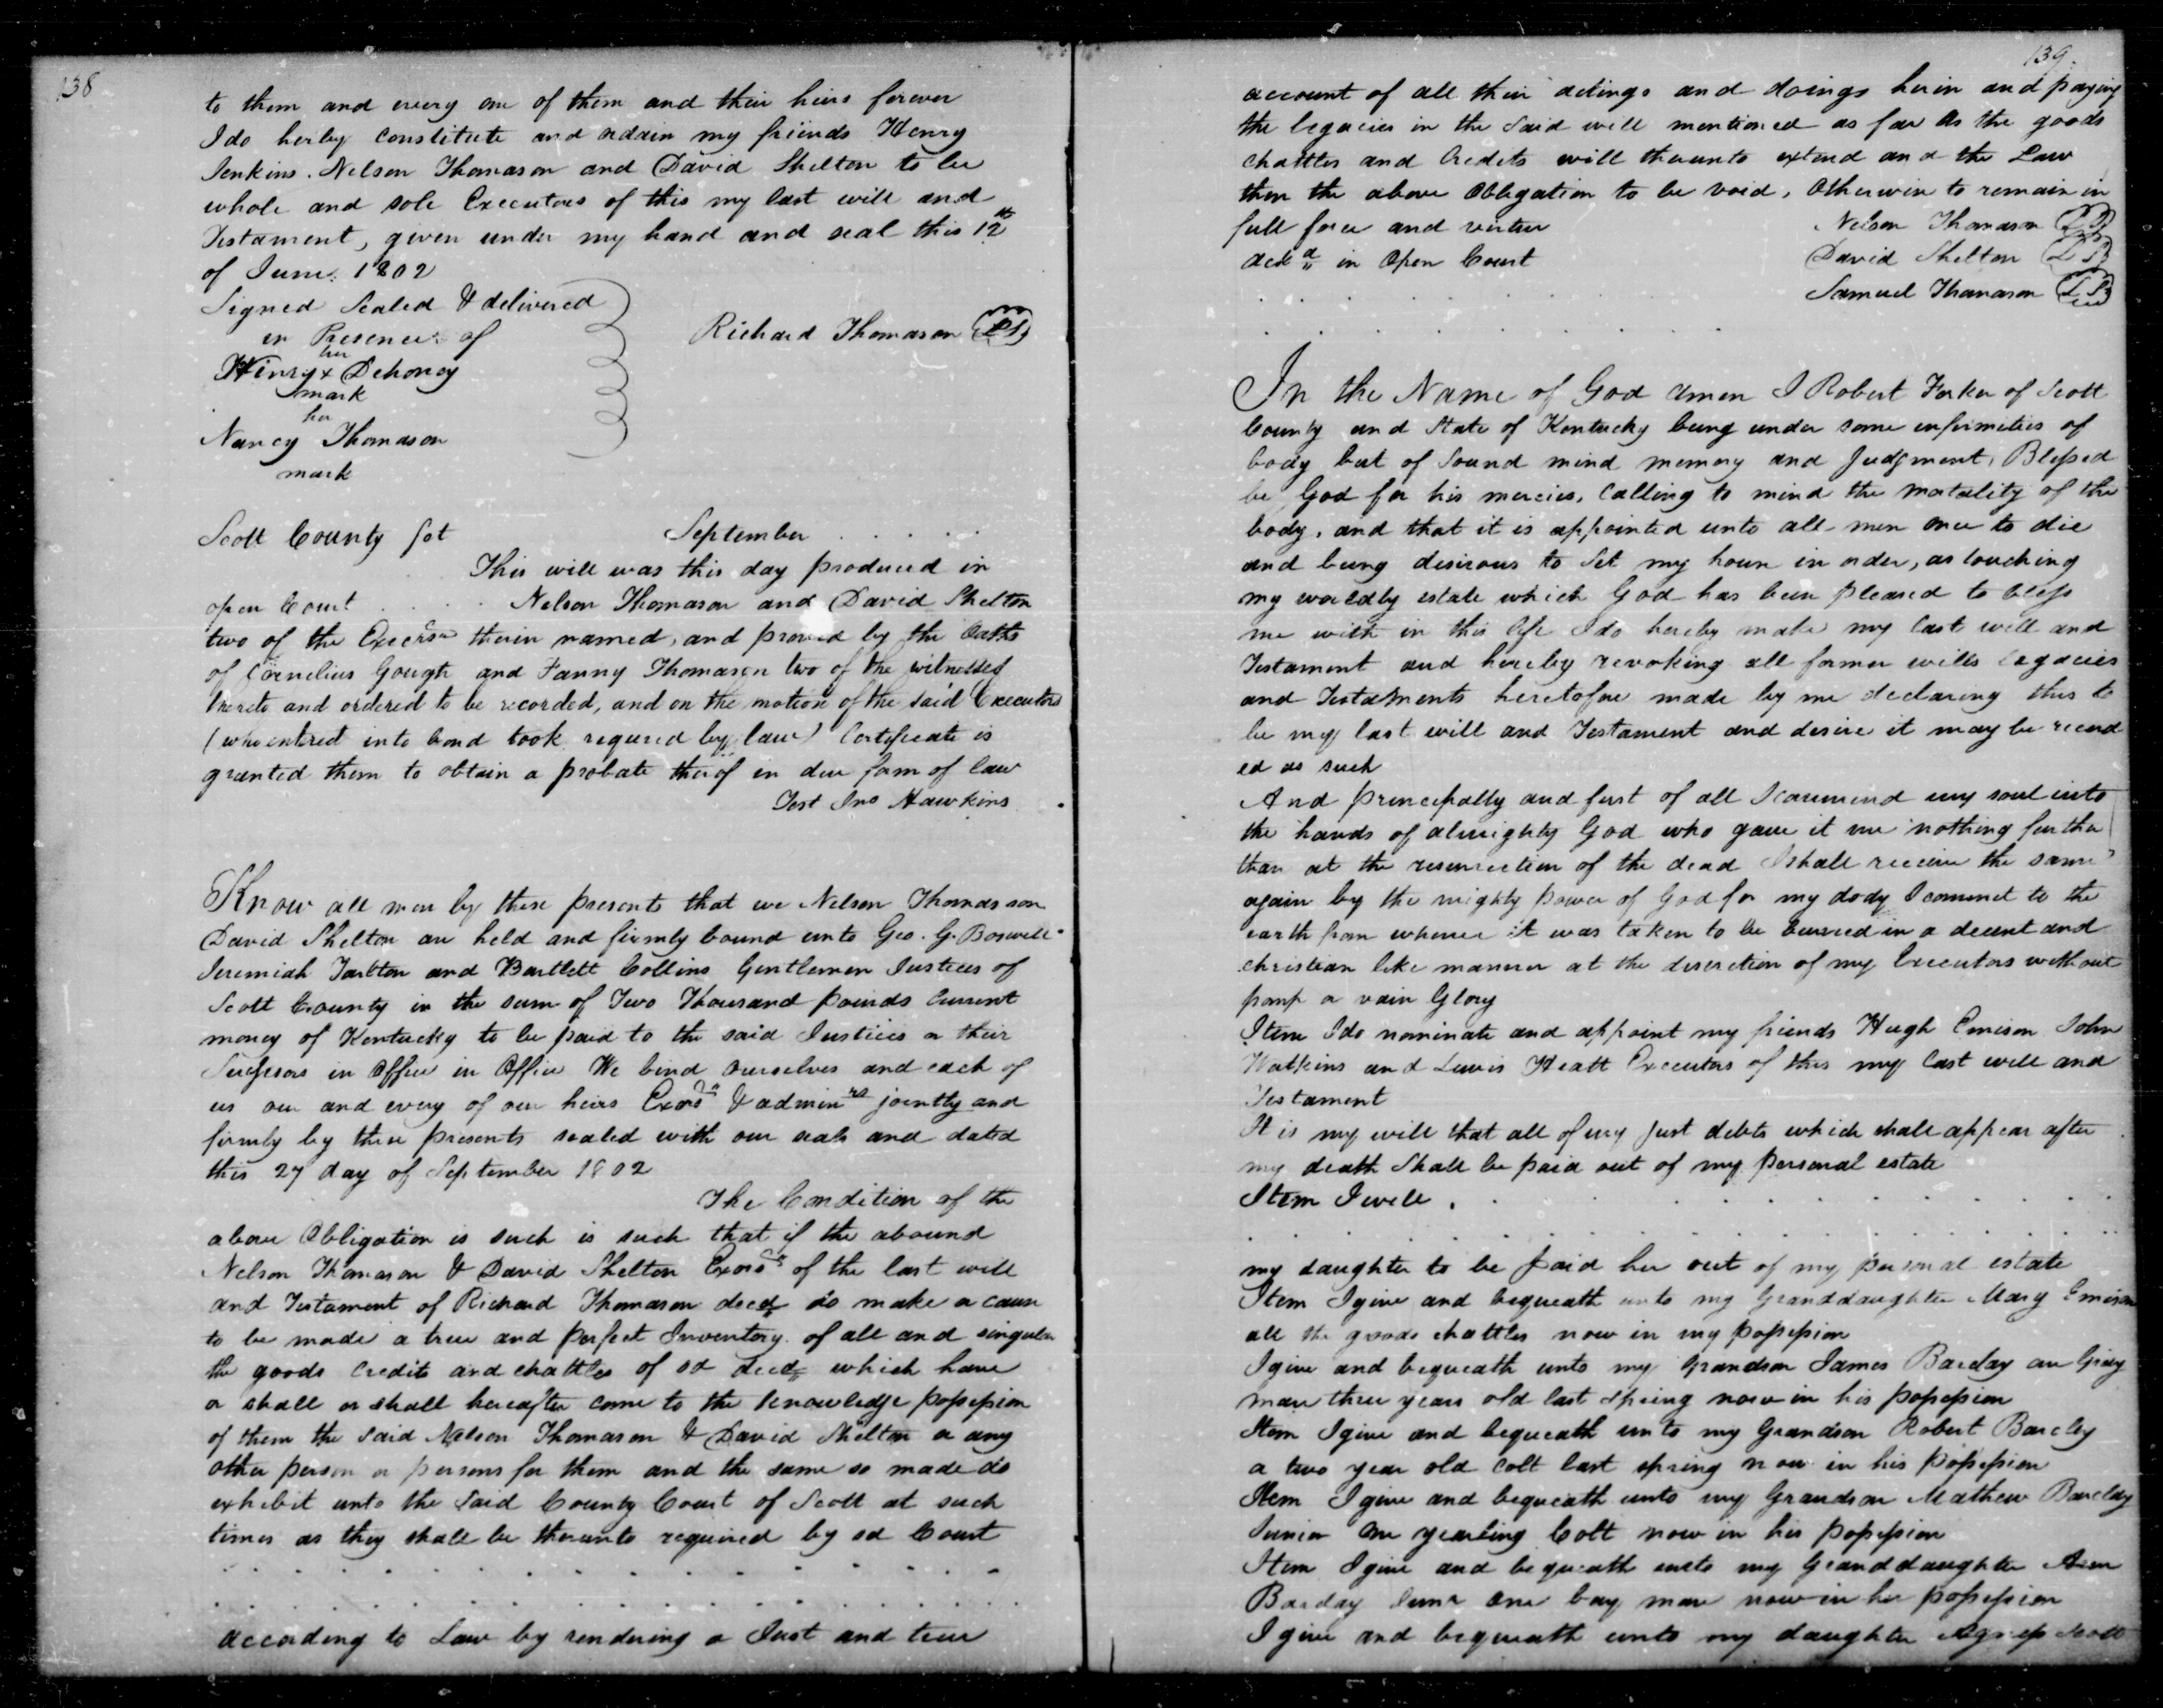 138
to them and every one of them and their heirs forever
I do herby constitute and ordain my friends Henry
Jenkins. Nelson Thomason and David Shelton to be
whole and sole Executors of this my last will and
Testament, given under my hand and seal this 12th
of June. 1802
Signed Sealed & delivered
in Presence of
Richard Thomason LS
her
Henry x Dehoney
mark
her
Nancy Thomason
mark
Scott County Sct September . . . . .
This will was this day produced in
open Court . . . . Nelson Thomason and David Shelton
two of the Execrs therin named, and proved by the Oaths
of Cornelius Gough and Fanny Thomason two of the witnesses
thereto and ordered to be recorded, and on the motion of the said Executors
(who entred into bond took requred by law) Certificate is
granted them to obtain a probate therof in due form of law
Test Jno Hawkins
Know all men by these presents that we Nelson Thomasson
David Shelton are held and firmly bound unto Geo. G. Boswell
Jeremiah Tarlton and Bartlett Collins Gentlemen Justices of
Scott County in the sum of Two Thousand pounds Current
money of Kentucky to be paid to the said Justices or their
Sucessors in office in Office We bind ourselves and each of
us our and every of our heirs Exors & adminrs jointly and
firmly by these presents sealed with our seals and dated
this 27 day of September 1802
The Condition of the
above Obligation is such is such that if the abound
Nelson Thomason & David Shelton Exors of the last will
and Testament of Richard Thomason decd do make or cause
to be made a true and perfect Inventory of all and singular
the goods Credits and chattles of sd decd which have
or shall or shall hereafter come to the knowledge possession
of them the said Nelson Thomason & David Shelton or any
other person or persons for them and the same so made do
exhibit unto the said County Court of Scott at such
times as they shall be therunto required by sd Court
. . . . . . . . . . . . .
. . . . . . . . . . . . .
according to Law by rendering a Just and true
139.
account of all their actings and doings herin and paying
the legacies in the said will mentioned as far as the goods
chattles and Credets will thereunto extend and the Law
then the above Obligation to be void, Otherwise to remain in
full force and virtue Nelson Thomason LS
ackd in Open Court David Shelton LS
. . . . . . . Samuel Thomason LS
. . . . . . . . .
In the Name of God amen I Robert Forker of Scott
County and State of Kentucky being under some infirmities of
body but of Sound mind memory and Judgment, Blessed
be God for his mercies, Calling to mind the mortality of the
body, and that it is appointed unto all men once to die
and being desirous to Set my house in order, as touching
my worldly estate which God has been pleased to bless
me with in this life I do hereby make my last will and
Testament and hereby revoking all former wills legacies
and Testatments heretofore made by me declaring this to
be my last will and Testament and desire it may be record
ed as such
And principally and first of all I commend my soul into
the hands of almighty God who gave it me nothing further
than at the resurrection of the dead I shall receive the same
again by the mighty power of God for my dody I commit to the
earth from whence it was taken to be burried in a decent and
christian like manner at the discretion of my Executors without
pomp or vain Glory
Item I do nominate and appoint my friends Hugh Emison John
Watkins and Lewis Heatt Executors of this my last will and
Testament
It is my will that all of my Just debts which shall appear after
my death Shall be paid out of my personal estate
Item I will . . . . . . . . . . .
. . . . . . . . . . . . . . .
my daughter to be paid her out of my personal estate
Item I give and bequeath unto my Granddaughter Mary Emison
all the goods chattles now in my possession
I give and bequeath unto my Grandson James Barclay one Gray
mare three years old last spring now in his possession
Item I give and bequeath unto my Grandson Robert Barcley
a two year old Colt last spring now in his possession
Item I give and bequeath unto my Grandson Mathew Barclay
Junior One yearling Colt now in his possession
Item I give and bequeath unto my Granddaughter Ann
Barclay Junr One bay mare now in her possession
I give and bequeath unto my daughter Agness Scott